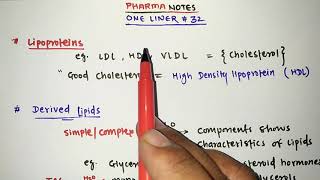 PHARMA NOTES
ONE LINER # 32
* Lipoproteins
eg. LDL, HDL VLDL = {Cholesterol}
"Good Cholesterol = High Density lipoprotein (HDL)
* Derived Lipids
simple/complex → components shows
Characteristics of Lipids
eg: steroid hormones
H2O